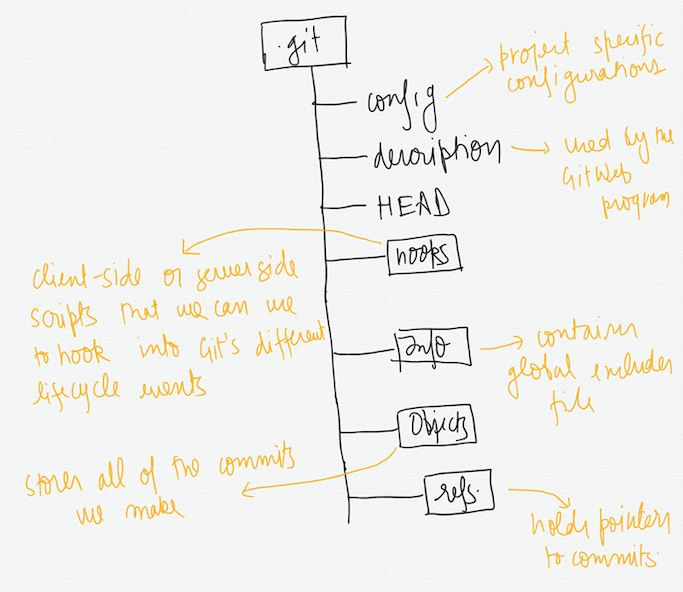 .git
config
project specific
configurations
description
used by the
GitWeb
program
HEAD
hooks
client-side or server side
scripts that we can use
to hook into Git's different
lifecycle events
info
contains
global excludes
file
Objects
stores all of the commits
we make
refs.
holds pointers
to commits.